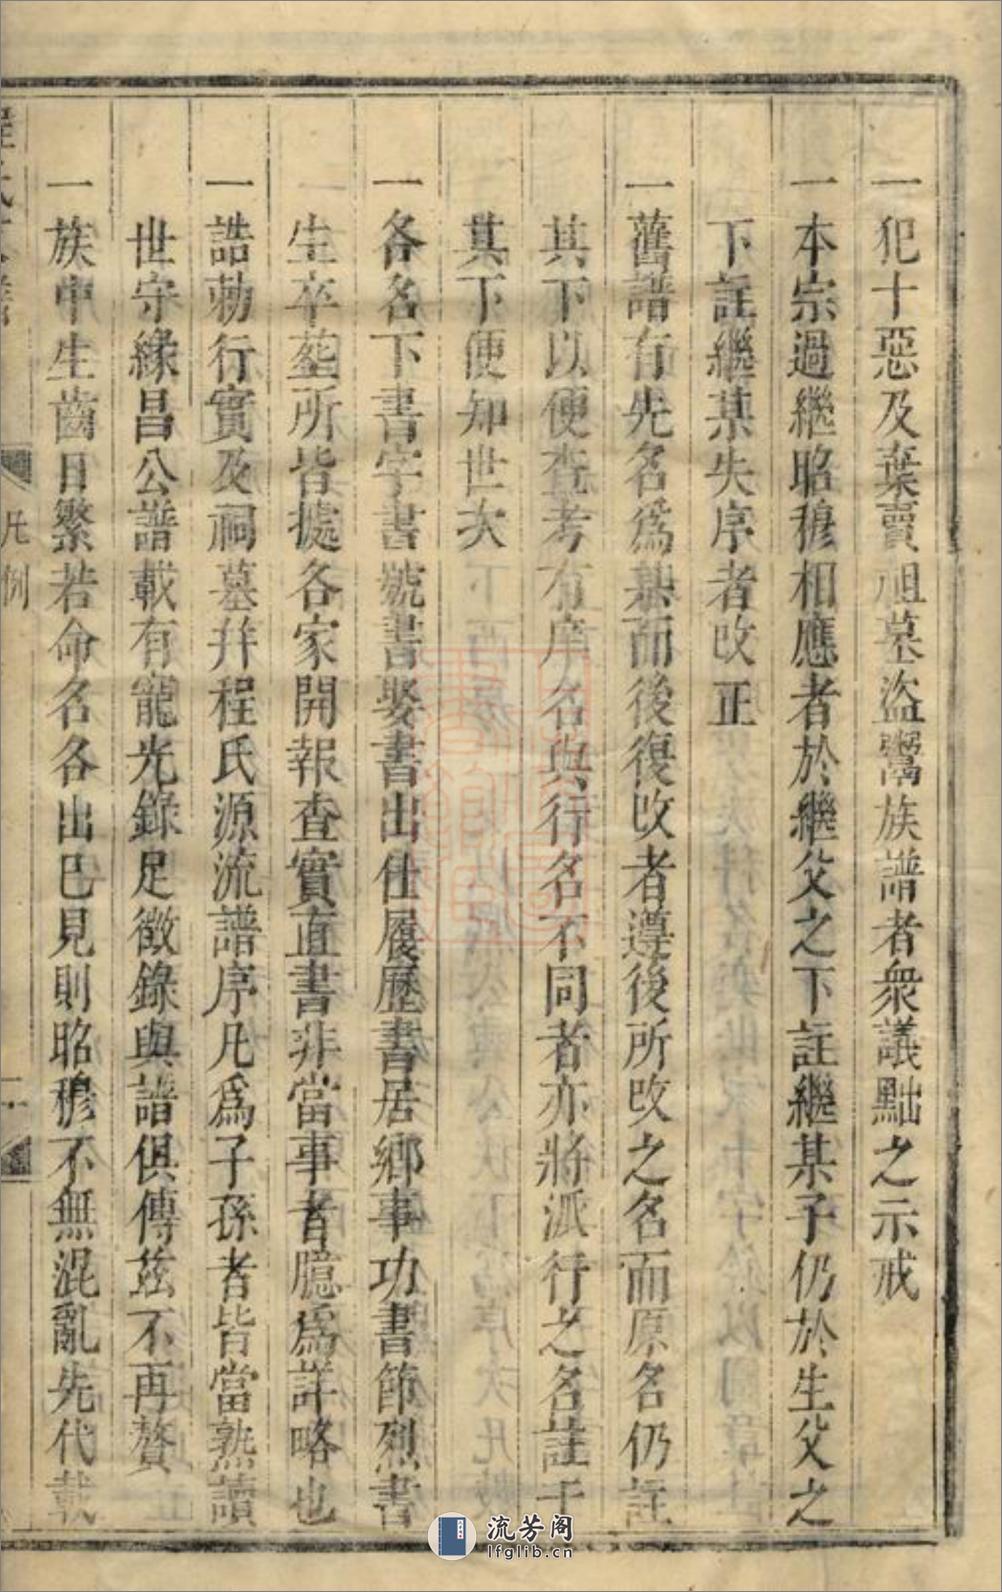 一犯十惡及棄賣祖墓盜鬻族譜者衆議黜之示戒
一本宗過繼昭穆相應者於繼父之下註繼某子仍於生父之
下註繼某失序者改正
一舊譜有先名爲某而後復改者遵後所改之名而原名仍註
其下以便查考有庠名與行名不同者亦將派行之名註于
其下便知世次
一各名下書字書號書娶書出仕履歷書居鄉事功書節烈書
生卒塟所皆據各家開報查實直書非當事者臆爲詳略也
一誥勅行實及祠墓并程氏源流譜序凡爲子孫者皆當熟讀
世守緣昌公譜載有寵光錄足徵錄與譜俱傳茲不再贅
一族中生齒日繁若命名各出已見則昭穆不無混亂先代載
凡例
二
流芳阁
lfglib.cn